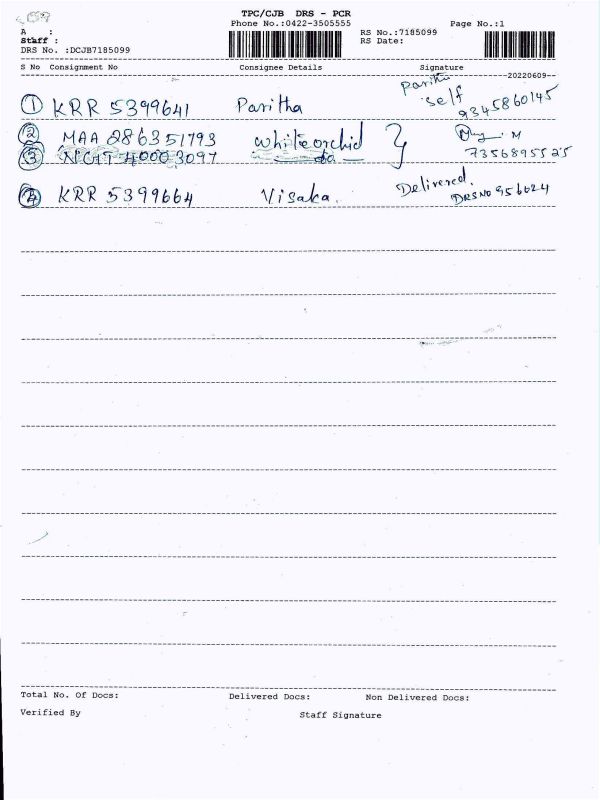 TPC/CJB DRS - PCR
Phone No.:0422-3505555 Page No.:1
A :
Staff :
RS No.:7185099
RS Date:
DRS No. :DCJB7185099
S No Consignment No Consignee Details Signature
--20220609--
1 KRR 5399641 Paritha Paritha self 9345860145
2 MAA 286351793 white orchid M
3 40003097 do 7356895525
4 KRR 5399664 Visaka. Delivered. DRSNO 956624
Total No. Of Docs: Delivered Docs: Non Delivered Docs:
Verified By Staff Signature